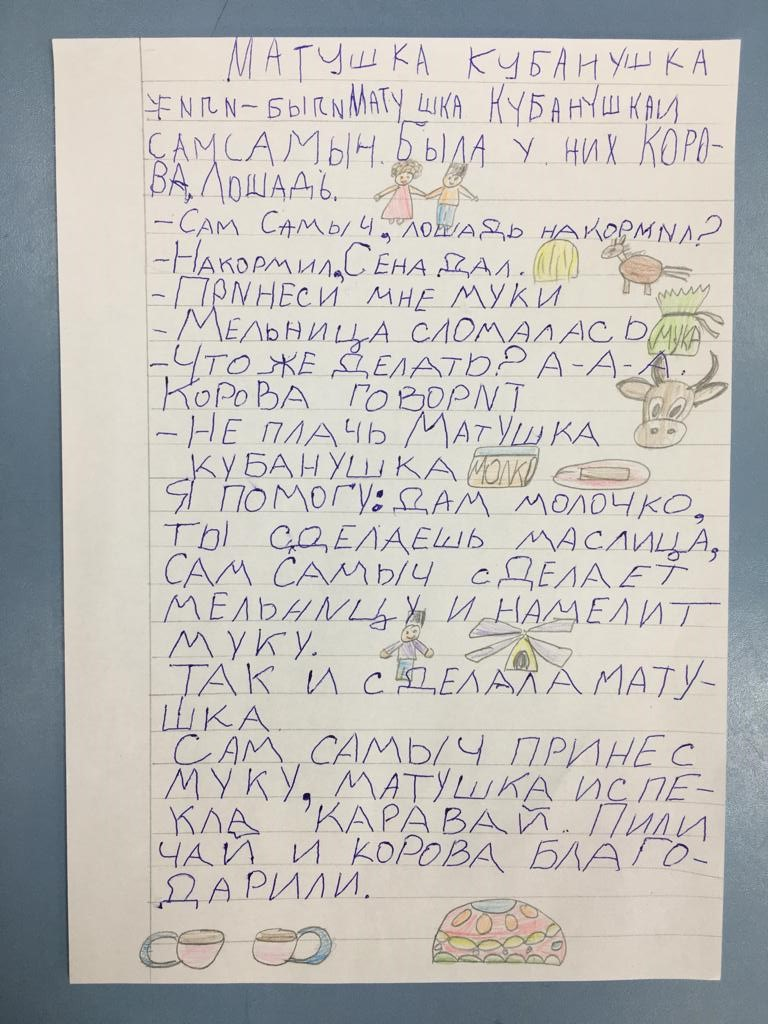 МАТУШКА КУБАНУШКА
ЖИЛИ-БЫЛИ МАТУШКА КУБАНУШКА И
САМ САМЫЧ. БЫЛА У НИХ КОРО-
ВА, ЛОШАДЬ.
-САМ САМЫЧ, ЛОШАДЬ НАКОРМИЛ?
-НАКОРМИЛ, СЕНА ДАЛ.
-ПРИНЕСИ МНЕ МУКИ
-МЕЛЬНИЦА СЛОМАЛАСЬ
МУКА
-ЧТО ЖЕ ДЕЛАТЬ? А-А-А.
КОРОВА ГОВОРИТ
-НЕ ПЛАЧЬ МАТУШКА
КУБАНУШКА
МОЛКО
Я ПОМОГУ: ДАМ МОЛОЧКО,
ТЫ СДЕЛАЕШЬ МАСЛИЦА,
САМ САМЫЧ СДЕЛАЕТ
МЕЛЬНИЦУ И НАМЕЛИТ
МУКУ.
ТАК И СДЕЛАЛА МАТУ-
ШКА.
САМ САМЫЧ ПРИНЕС
МУКУ, МАТУШКА ИСПЕ-
КЛА КАРАВАЙ. ПИЛИ
ЧАЙ И КОРОВА БЛАГО-
ДАРИЛИ.